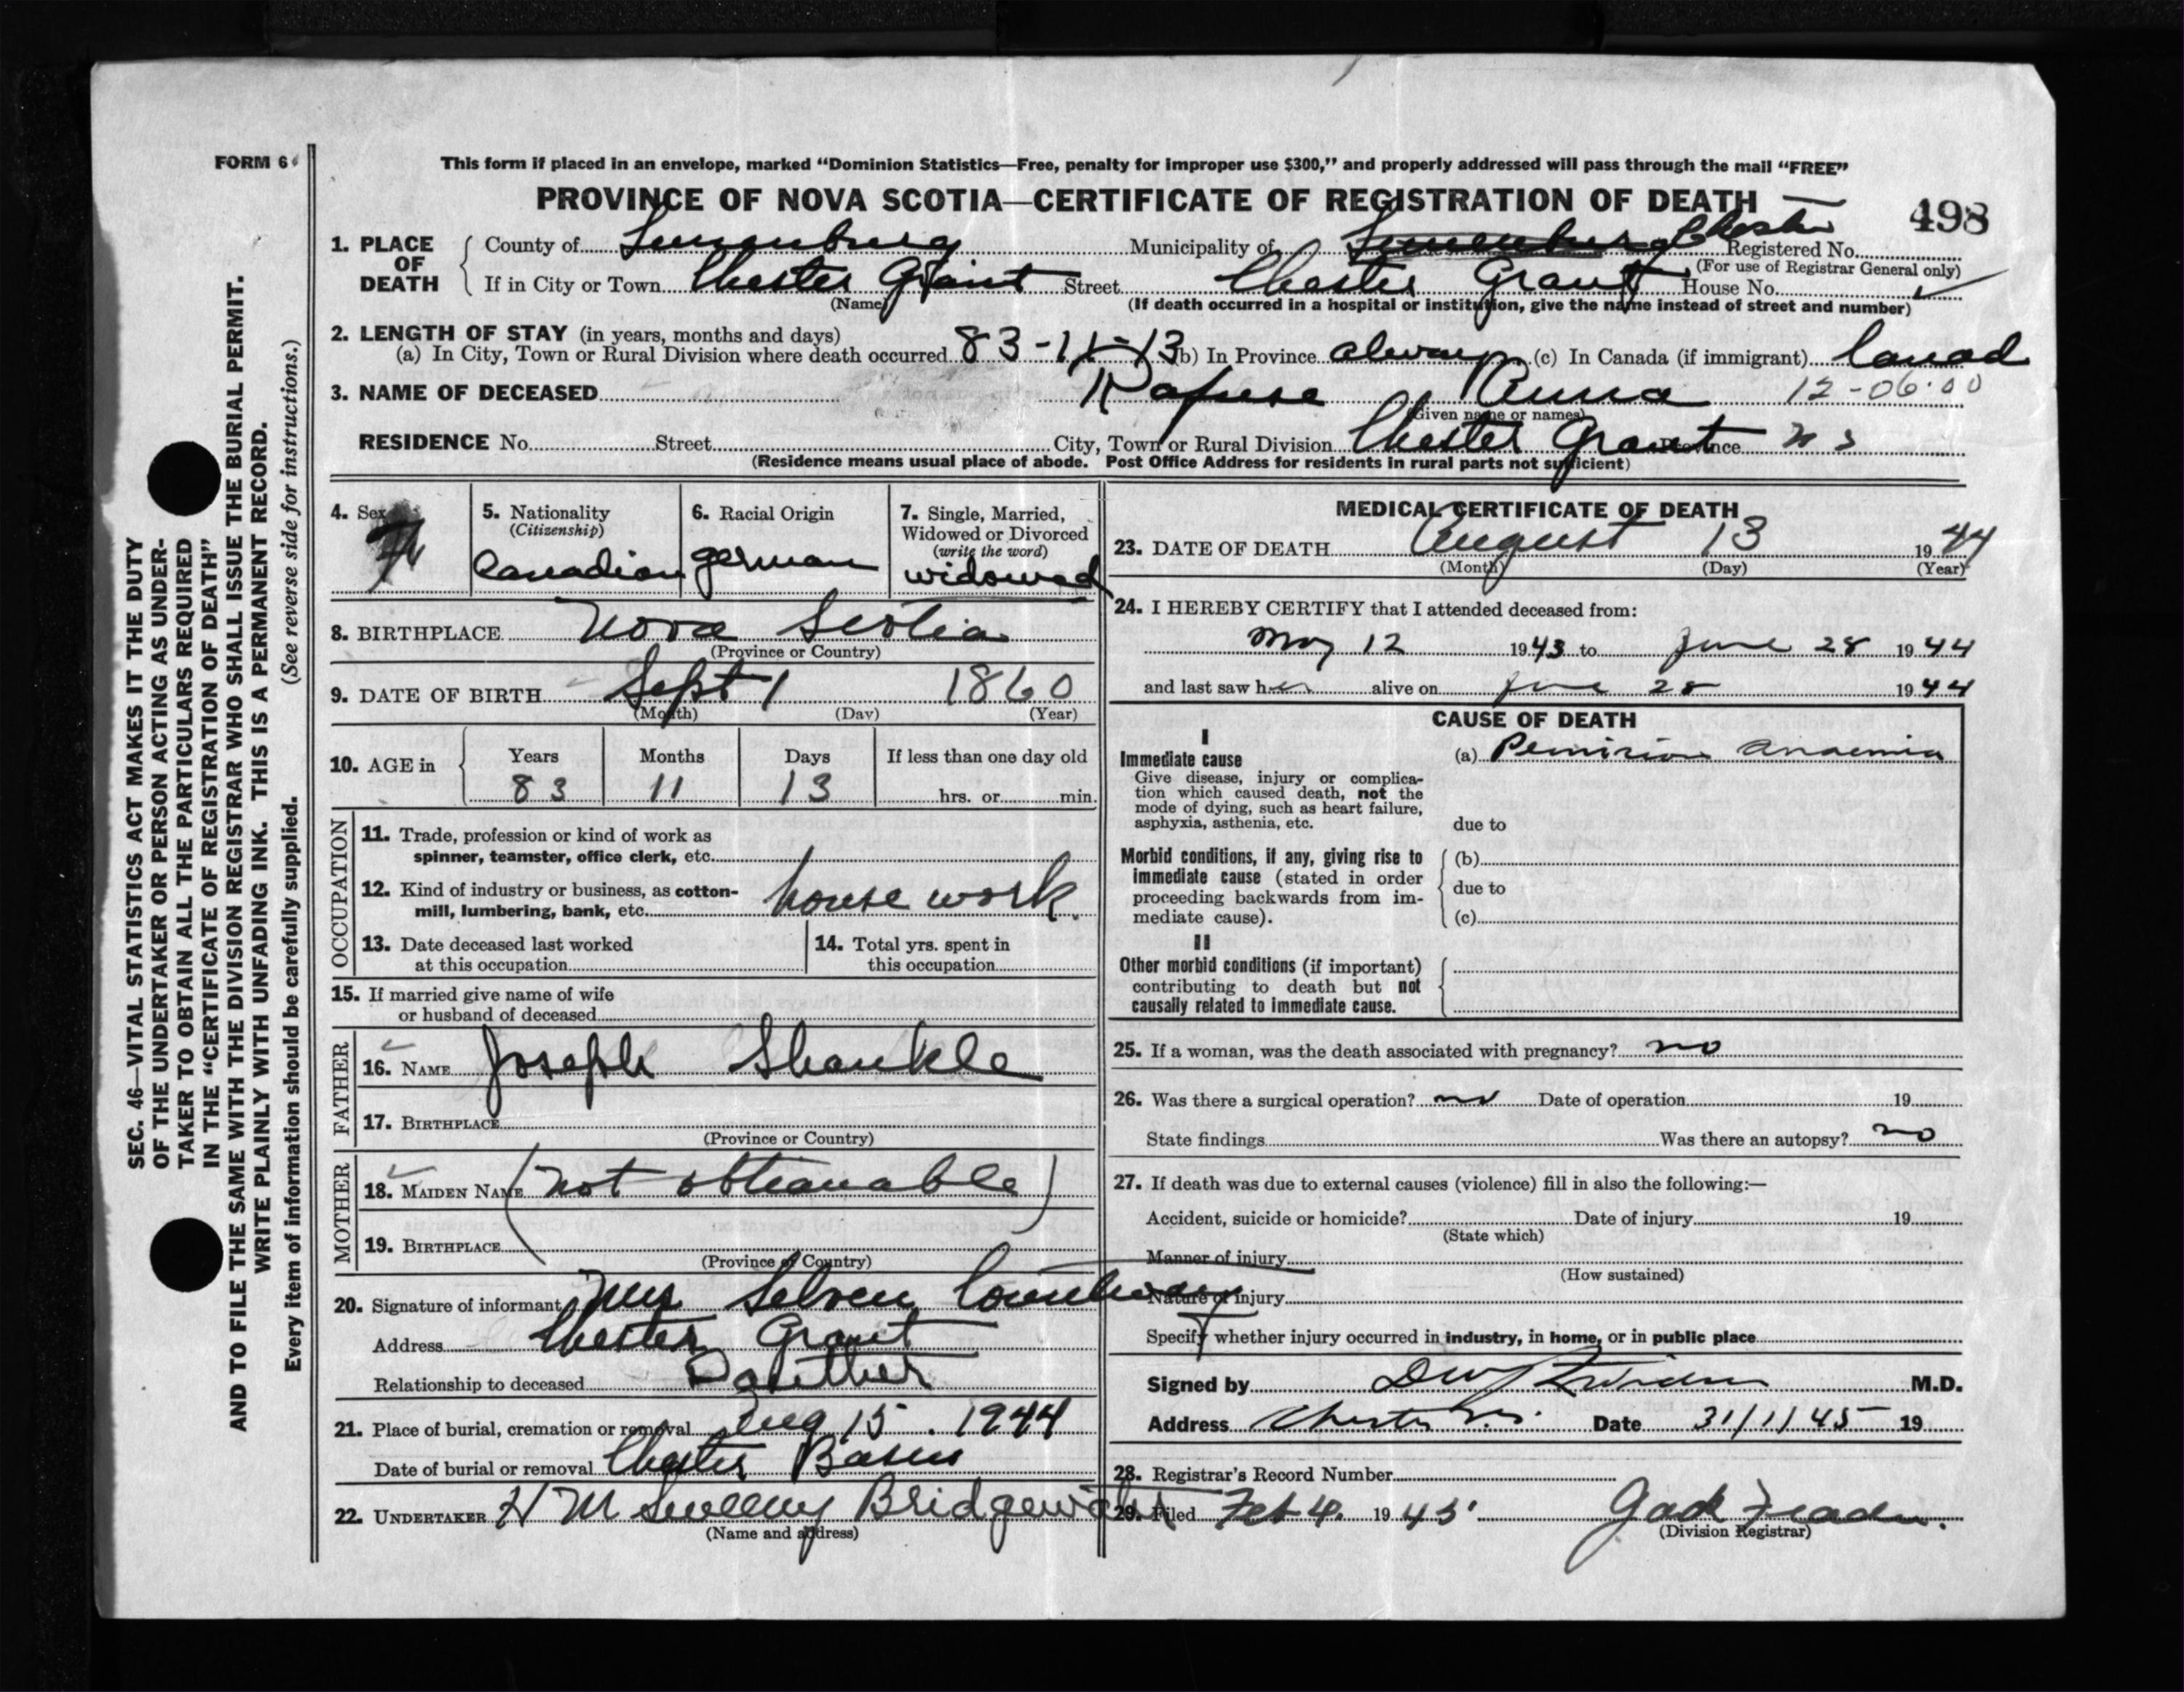 FORM 6
This form if placed in an envelope, marked “Dominion Statistics—Free, penalty for improper use $300,” and properly addressed will pass through the mail “FREE”
PROVINCE OF NOVA SCOTIA—CERTIFICATE OF REGISTRATION OF DEATH
498
1. PLACE OF DEATH
County of Lunenburg Municipality of Lunenburg Chester Registered No.
(For use of Registrar General only)
If in City or Town Chester Grant Street Chester Grant House No.
(Name) (If death occurred in a hospital or institution, give the name instead of street and number)
2. LENGTH OF STAY (in years, months and days)
(a) In City, Town or Rural Division where death occurred 83-11-13 (b) In Province always (c) In Canada (if immigrant) Canad
3. NAME OF DECEASED Rafuse Anna 12-06-00
(Given name or names)
RESIDENCE No. Street City, Town or Rural Division Chester Grant Province N S
(Residence means usual place of abode. Post Office Address for residents in rural parts not sufficient)
4. Sex F
5. Nationality (Citizenship) Canadian
6. Racial Origin german
7. Single, Married, Widowed or Divorced (write the word) widowed
8. BIRTHPLACE Nova Scotia
(Province or Country)
9. DATE OF BIRTH Sept 1 1860
(Month) (Day) (Year)
10. AGE in Years Months Days If less than one day old
83 11 13 hrs. or min.
OCCUPATION
11. Trade, profession or kind of work as
spinner, teamster, office clerk, etc.
12. Kind of industry or business, as cotton-
mill, lumbering, bank, etc. house work
13. Date deceased last worked
at this occupation
14. Total yrs. spent in
this occupation
15. If married give name of wife
or husband of deceased
FATHER
16. NAME Joseph Shankle
17. BIRTHPLACE
(Province or Country)
MOTHER
18. MAIDEN NAME (not obtianable)
19. BIRTHPLACE
(Province or Country)
20. Signature of informant Mrs Selven Countway
Address Chester Grant
Relationship to deceased Daughter
21. Place of burial, cremation or removal Aug 15. 1944
Date of burial or removal Chester Basin
22. UNDERTAKER H M Bridgewater
(Name and address)
MEDICAL CERTIFICATE OF DEATH
23. DATE OF DEATH August 13 1944
(Month) (Day) (Year)
24. I HEREBY CERTIFY that I attended deceased from:
May 12 1943 to June 28 1944
and last saw her alive on June 28 1944
CAUSE OF DEATH
I
Immediate cause (a) Pernicious Anaemia
Give disease, injury or complica-
tion which caused death, not the
mode of dying, such as heart failure,
asphyxia, asthenia, etc. due to
Morbid conditions, if any, giving rise to (b)
immediate cause (stated in order due to
proceeding backwards from im-
mediate cause). (c)
II
Other morbid conditions (if important)
contributing to death but not
causally related to immediate cause.
25. If a woman, was the death associated with pregnancy? no
26. Was there a surgical operation? no Date of operation 19
State findings Was there an autopsy? no
27. If death was due to external causes (violence) fill in also the following:—
Accident, suicide or homicide? Date of injury 19
(State which)
Manner of injury
(How sustained)
Nature of injury
Specify whether injury occurred in industry, in home, or in public place
Signed by M.D.
Address Chester N.S. Date 31/1/45 19
28. Registrar's Record Number
29. Filed Feb 4. 1945.
(Division Registrar)
SEC. 46—VITAL STATISTICS ACT MAKES IT THE DUTY
OF THE UNDERTAKER OR PERSON ACTING AS UNDER-
TAKER TO OBTAIN ALL THE PARTICULARS REQUIRED
IN THE “CERTIFICATE OF REGISTRATION OF DEATH”
AND TO FILE THE SAME WITH THE DIVISION REGISTRAR WHO SHALL ISSUE THE BURIAL PERMIT.
WRITE PLAINLY WITH UNFADING INK. THIS IS A PERMANENT RECORD.
Every item of information should be carefully supplied. (See reverse side for instructions.)